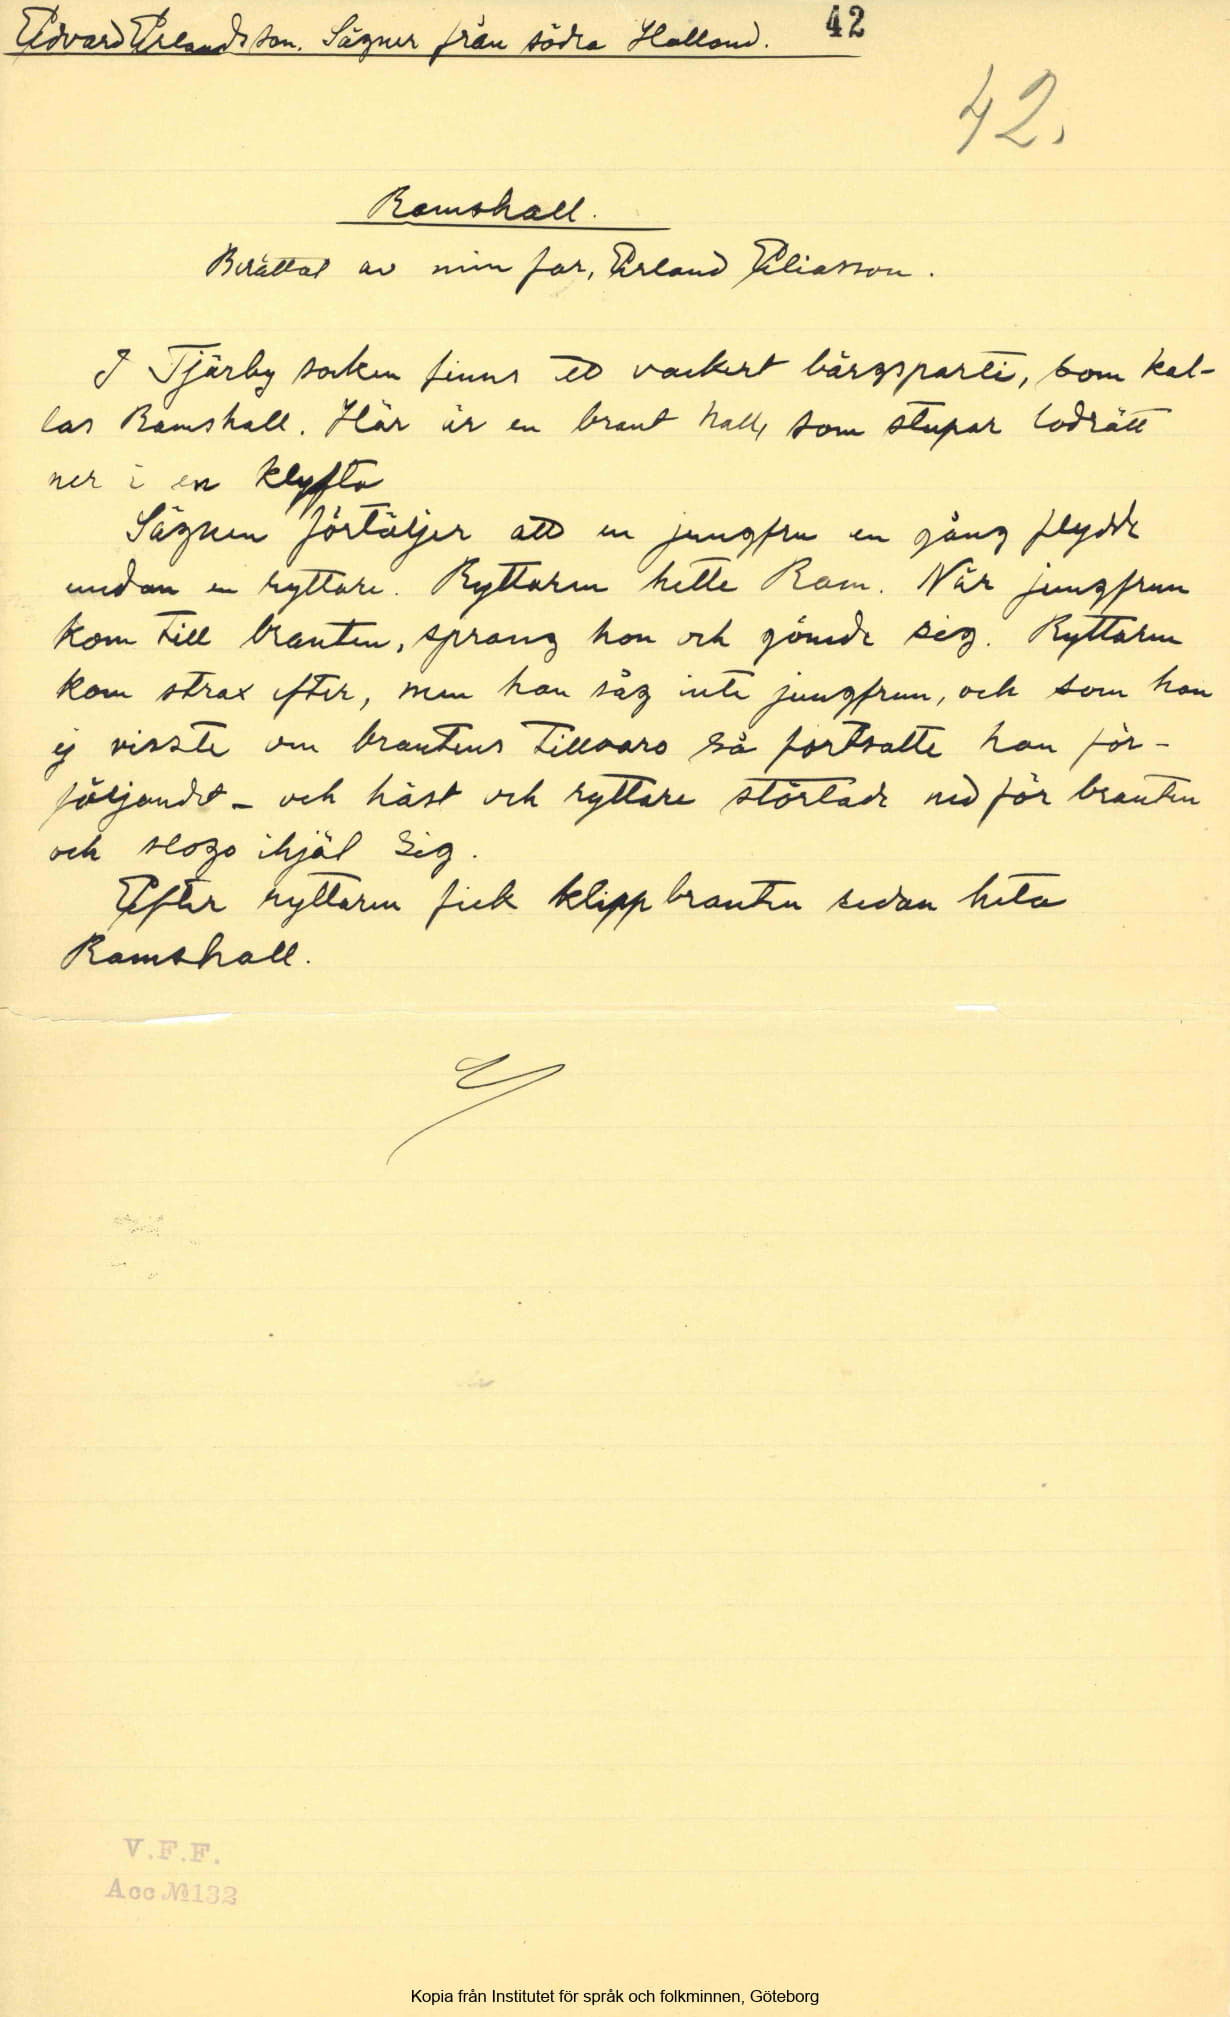 Edvard Erlandsson. Sägner från södra Halland. 42
42.
Ramshall.
Berättat av min far, Erland Eliasson.
I Tjärby socken finns ett vackert bärgsparti, som kal-
las Ramshall. Här är en brant hall, som stupar lodrätt
ner i en klyfta
Sägnen förtäljer att en jungfru en gång flydde
undan en ryttare. Ryttaren hette Ram. När jungfrun
kom till branten, sprang hon och gömde sig. Ryttaren
kom strax efter, men han såg inte jungfrun, och som han
ej visste om brantens tillvaro så fortsatte han för-
följandet - och häst och ryttare störtade ned för branten
och slogo ihjäl sig.
Efter ryttaren fick klippbranten sedan heta
Ramshall.
V.F.F.
Acc №132
Kopia från Institutet för språk och folkminnen, Göteborg